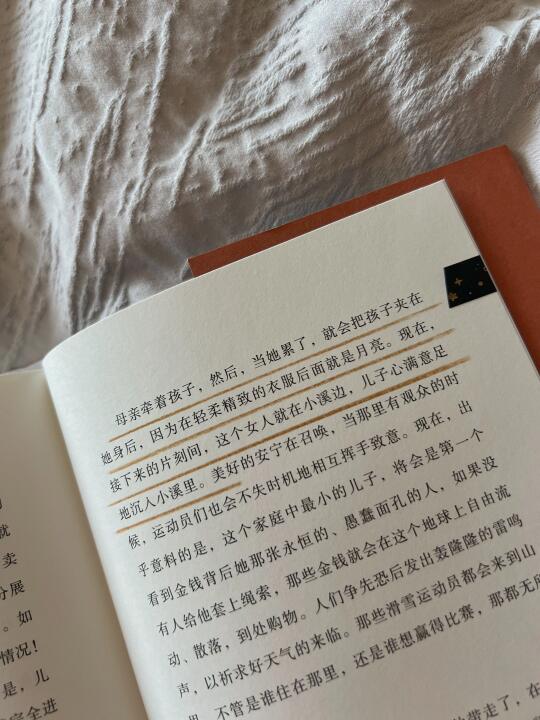 就
卖
分展
。如
情况！
是，儿
完全进
母亲牵着孩子，然后，当她累了，就会把孩子夹在
她身后，因为在轻柔精致的衣服后面就是月亮。现在，
接下来的片刻间，这个女人就在小溪边，儿子心满意足
地沉入小溪里。美好的安宁在召唤，当那里有观众的时
候，运动员们也会不失时机地相互挥手致意。现在，出
乎意料的是，这个家庭中最小的儿子，将会是第一个
看到金钱背后她那张永恒的、愚蠢面孔的人，如果没
有人给他套上绳索，那些金钱就会在这个地球上自由流
动、散落，到处购物。人们争先恐后发出轰隆隆的雷鸣
声，以祈求好天气的来临。那些滑雪运动员都会来到山
里，不管是谁住在那里，还是谁想赢得比赛，那都无所
带走了，在